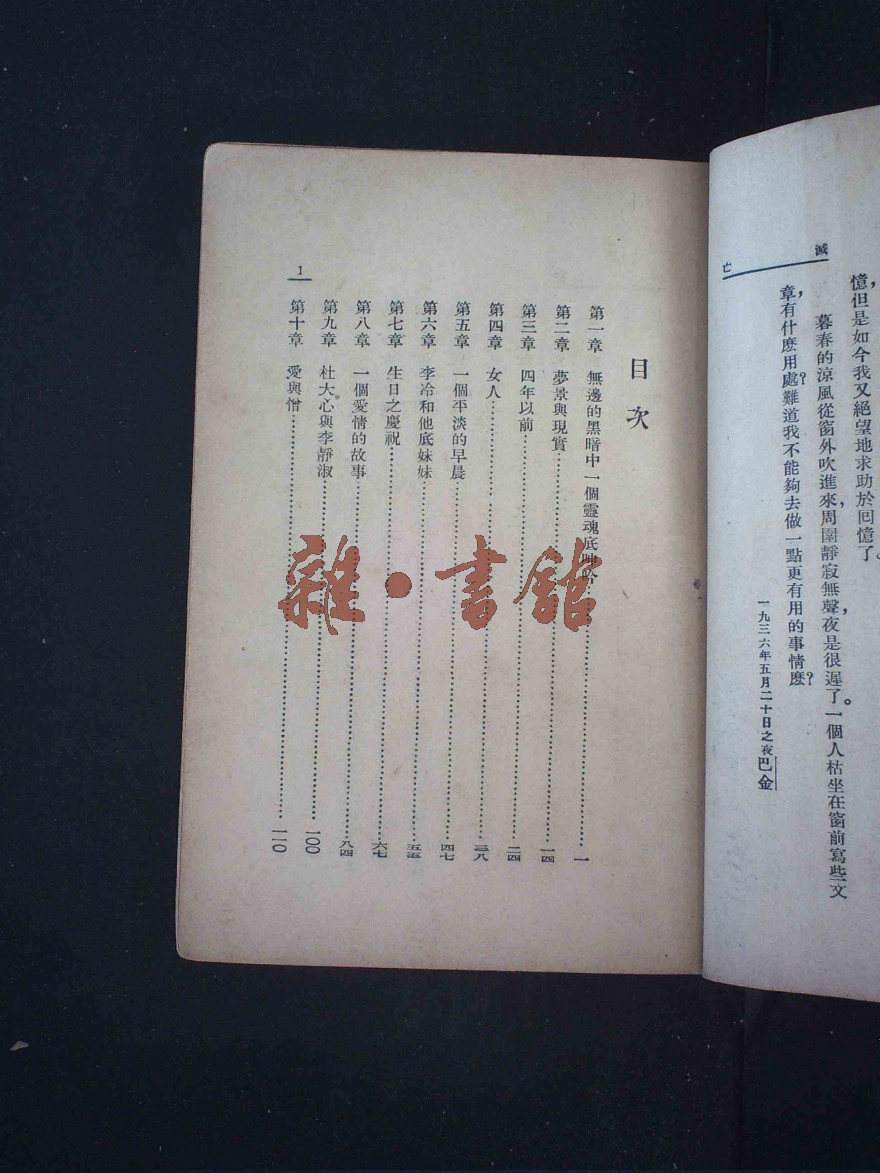 滅
亡
憶,但是如今我又絕望地求助於回憶了。
暮春的涼風從窗外吹進來,周圍靜寂無聲,夜是很遲了。一個人枯坐在窗前寫些文
章,有什麽用處?難道我不能夠去做一點更有用的事情麽?
一九三六年五月二十日之夜巴金
目次
第一章 無邊的黑暗中一個靈魂底呻吟…一
第二章 夢景與現實…一四
第三章 四年以前…二四
第四章 女人…三八
第五章 一個平淡的早晨…四七
第六章 李冷和他底妹妹…五五
第七章 生日之慶祝…六七
第八章 一個愛情的故事…八四
第九章 杜大心與李靜淑…一〇〇
第十章 愛與憎…一一〇
1
雜·書館